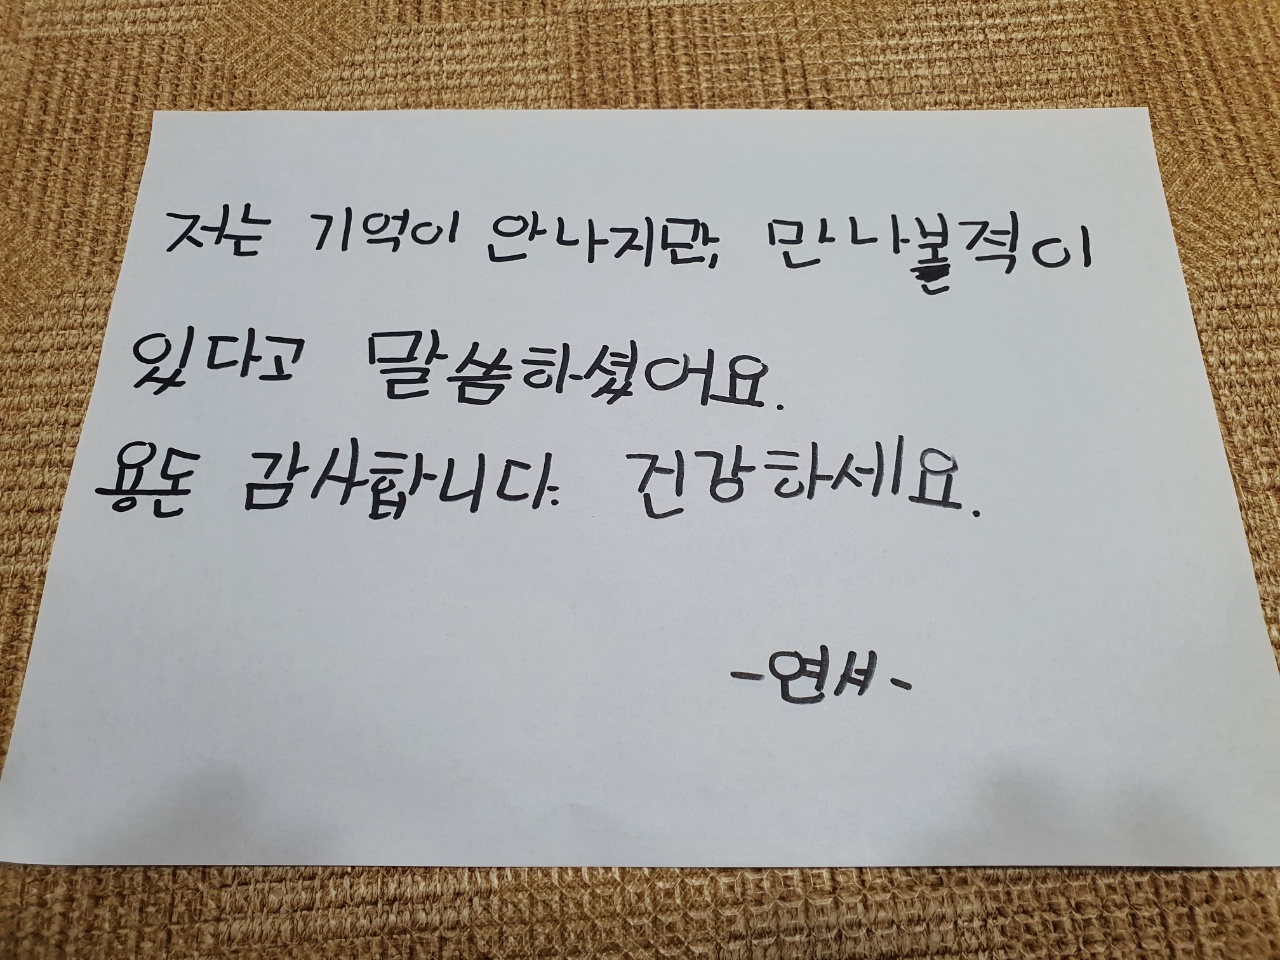 저는 기억이 안나지만, 만나본적이
있다고 말씀하셨어요.
용돈 감사합니다. 건강하세요.
-연서-